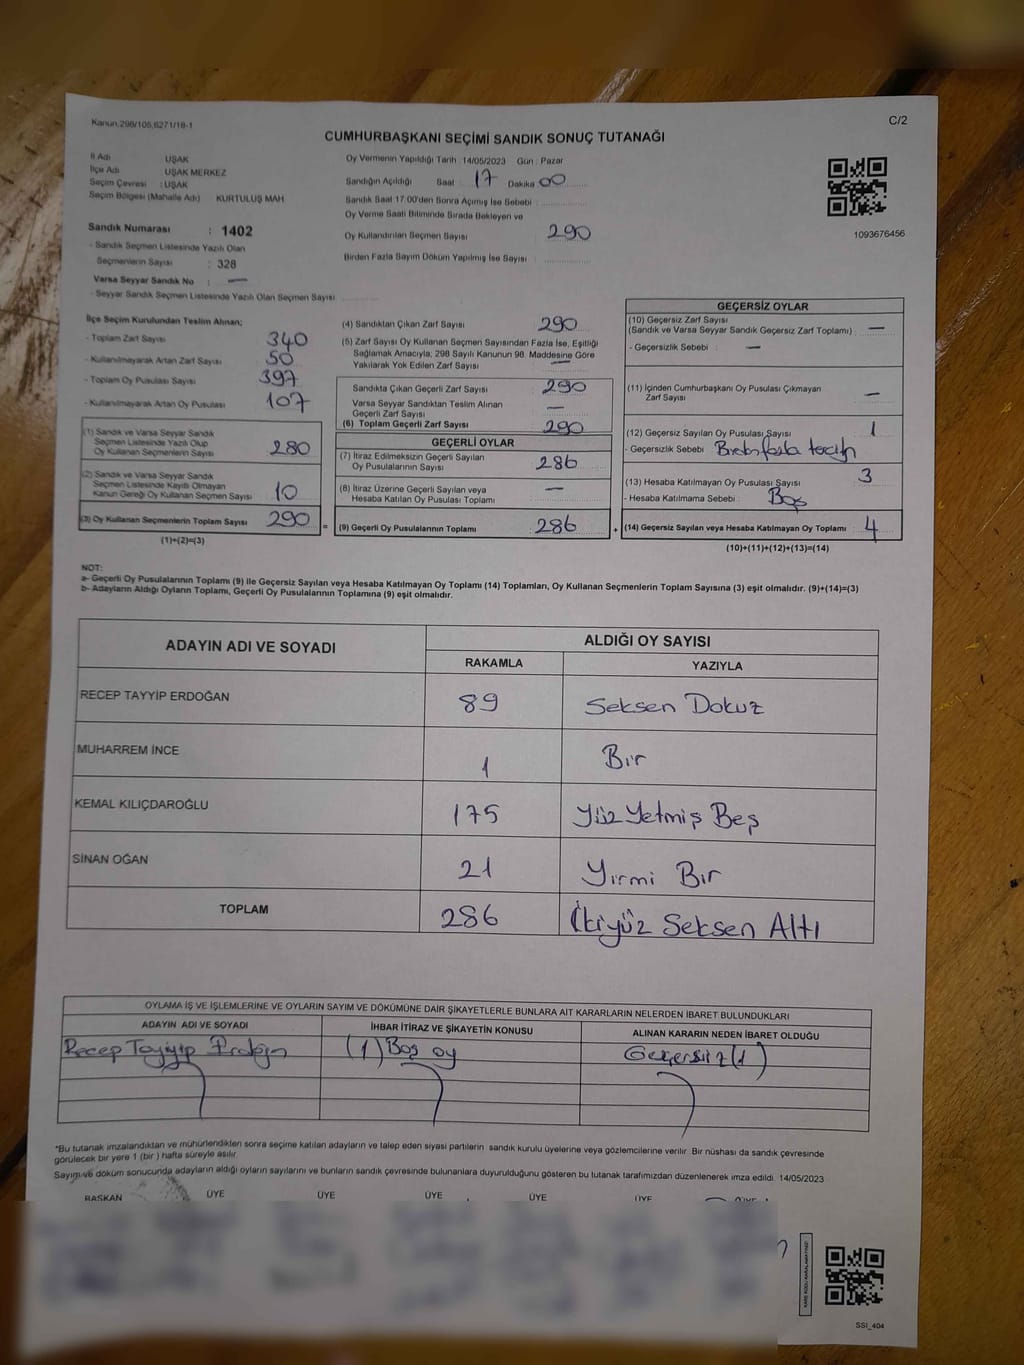 Kanun,298/105,6271/18-1
C/2
CUMHURBAŞKANI SEÇİMİ SANDIK SONUÇ TUTANAĞI
İl Adı UŞAK
İlçe Adı UŞAK MERKEZ
Seçim Çevresi : UŞAK
Seçim Bölgesi (Mahalle Adı) KURTULUŞ MAH
Oy Vermenin Yapıldığı Tarih : 14/05/2023 Gün : Pazar
Sandığın Açıldığı Saat 17 Dakika 00
Sandık Saat 17:00'den Sonra Açımış İse Sebebi :
Oy Verme Saati Bitiminde Sırada Bekleyen ve
Oy Kullandırılan Seçmen Sayısı 290
Birden Fazla Sayım Döküm Yapılmış İse Sayısı :
1093676456
Sandık Numarası : 1402
- Sandık Seçmen Listesinde Yazılı Olan
Seçmenlerin Sayısı : 328
Varsa Seyyar Sandık No : —
- Seyyar Sandık Seçmen Listesinde Yazılı Olan Seçmen Sayısı
İlçe Seçim Kurulundan Teslim Alınan;
- Toplam Zarf Sayısı 340
- Kullanılmayarak Artan Zarf Sayısı 50
- Toplam Oy Pusulası Sayısı 397
- Kullanılmayarak Artan Oy Pusulası 107
(1) Sandık ve Varsa Seyyar Sandık
Seçmen Listesinde Yazılı Olup
Oy Kullanan Seçmenlerin Sayısı 280
(2) Sandık ve Varsa Seyyar Sandık
Seçmen Listesinde Kayıtlı Olmayan
Kanun Gereği Oy Kullanan Seçmen Sayısı 10
(3) Oy Kullanan Seçmenlerin Toplam Sayısı 290 =
(1)+(2)=(3)
(4) Sandıktan Çıkan Zarf Sayısı 290
(5) Zarf Sayısı Oy Kullanan Seçmen Sayısından Fazla İse, Eşitliği
Sağlamak Amacıyla; 298 Sayılı Kanunun 98. Maddesine Göre
Yakılarak Yok Edilen Zarf Sayısı —
Sandıkta Çıkan Geçerli Zarf Sayısı 290
Varsa Seyyar Sandıktan Teslim Alınan
Geçerli Zarf Sayısı —
(6) Toplam Geçerli Zarf Sayısı 290
GEÇERLİ OYLAR
(7) İtiraz Edilmeksizin Geçerli Sayılan
Oy Pusulalarının Sayısı 286
(8) İtiraz Üzerine Geçerli Sayılan veya
Hesaba Katılan Oy Pusulası Toplamı —
(9) Geçerli Oy Pusulalarının Toplamı 286 +
GEÇERSİZ OYLAR
(10) Geçersiz Zarf Sayısı
(Sandık ve Varsa Seyyar Sandık Geçersiz Zarf Toplamı) : —
- Geçersizlik Sebebi : —
(11) İçinden Cumhurbaşkanı Oy Pusulası Çıkmayan
Zarf Sayısı —
(12) Geçersiz Sayılan Oy Pusulası Sayısı 1
- Geçersizlik Sebebi Birden fazla tercih
(13) Hesaba Katılmayan Oy Pusulası Sayısı 3
- Hesaba Katılmama Sebebi : Boş
(14) Geçersiz Sayılan veya Hesaba Katılmayan Oy Toplamı 4
(10)+(11)+(12)+(13)=(14)
NOT:
a- Geçerli Oy Pusulalarının Toplamı (9) ile Geçersiz Sayılan veya Hesaba Katılmayan Oy Toplamı (14) Toplamları, Oy Kullanan Seçmenlerin Toplam Sayısına (3) eşit olmalıdır. (9)+(14)=(3)
b- Adayların Aldığı Oyların Toplamı, Geçerli Oy Pusulalarının Toplamına (9) eşit olmalıdır.
ADAYIN ADI VE SOYADI
ALDIĞI OY SAYISI
RAKAMLA YAZIYLA
RECEP TAYYİP ERDOĞAN 89 Seksen Dokuz
MUHARREM İNCE 1 Bir
KEMAL KILIÇDAROĞLU 175 Yüz Yetmiş Beş
SİNAN OĞAN 21 Yirmi Bir
TOPLAM 286 İkiyüz Seksen Altı
OYLAMA İŞ VE İŞLEMLERİNE VE OYLARIN SAYIM VE DÖKÜMÜNE DAİR ŞİKAYETLERLE BUNLARA AİT KARARLARIN NELERDEN İBARET BULUNDUKLARI
ADAYIN ADI VE SOYADI İHBAR İTİRAZ VE ŞİKAYETİN KONUSU ALINAN KARARIN NEDEN İBARET OLDUĞU
Recep Tayyip Erdoğan (1) Boş oy Geçersiz (1)
*Bu tutanak imzalandıktan ve mühürlendikten sonra seçime katılan adayların ve talep eden siyasi partilerin sandık kurulu üyelerine veya gözlemcilerine verilir. Bir nüshası da sandık çevresinde
görülecek bir yere 1 (bir ) hafta süreyle asılır.
Sayım ve döküm sonucunda adayların aldığı oyların sayılarını ve bunların sandık çevresinde bulunanlara duyurulduğunu gösteren bu tutanak tarafımızdan düzenlenerek imza edildi. 14/05/2023
BAŞKAN ÜYE ÜYE ÜYE ÜYE ÜYE ÜYE
SSI_404